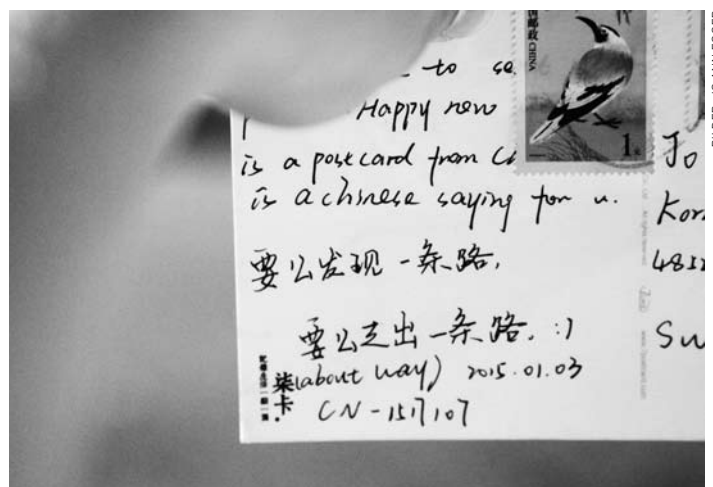 to se
Happy new
is a postcard from C
is a chinese saying for u.
要么发现一条路,
要么走出一条路. :)
(about way) 2015.01.03
CN-1517107
柒卡.
国邮政 CHINA
1元
Jo
Kor
4832
Su